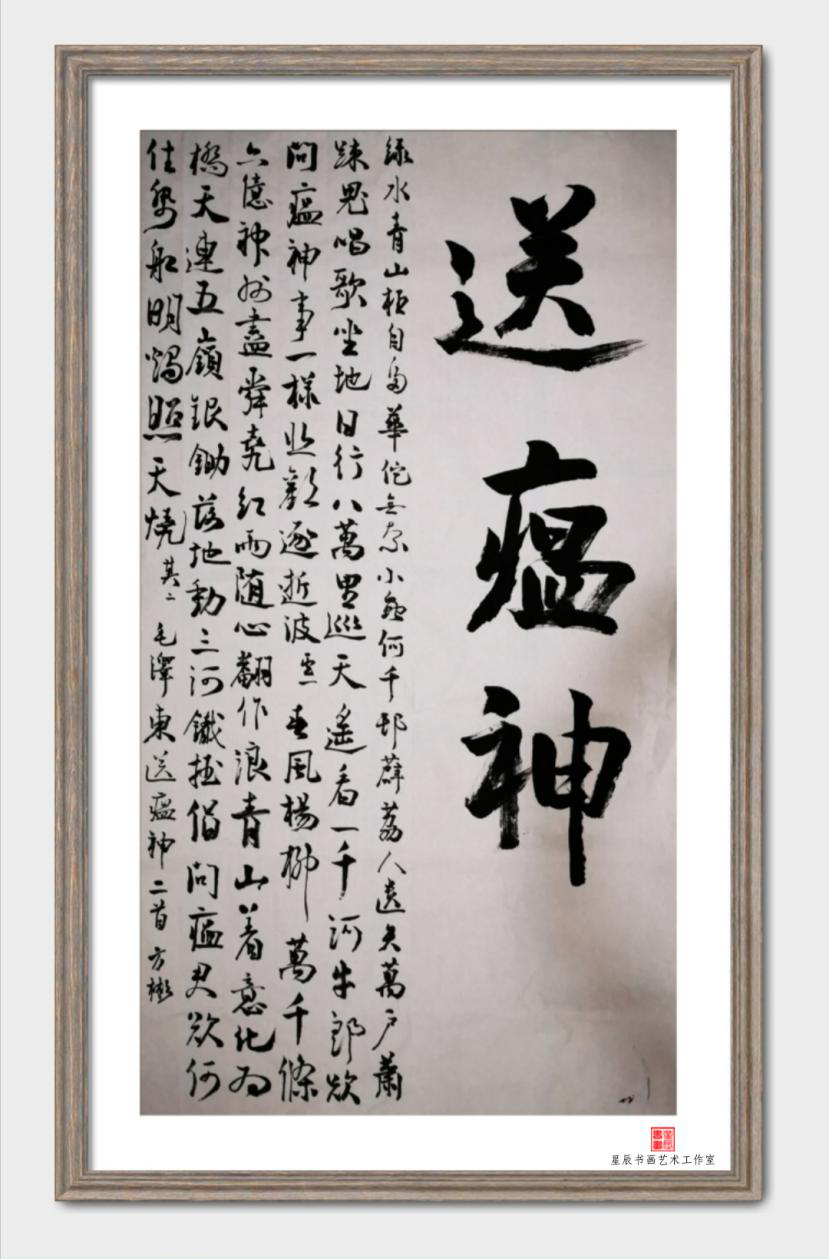 送瘟神
綠水青山枉自多華佗無奈小蟲何千邨薜荔人遺矢萬户蕭
踈鬼唱歌坐地日行八萬里巡天遥看一千河牛郎欲
問瘟神事一樣悲歡逐逝波 春風楊柳萬千條
六億神州盡舜堯紅雨随心翻作浪青山着意化為
橋天連五嶺銀鋤落地動三河鐵借問瘟君欲何
往紙船明燭照天燒 其二 毛澤東送瘟神二首
星辰书画艺术工作室